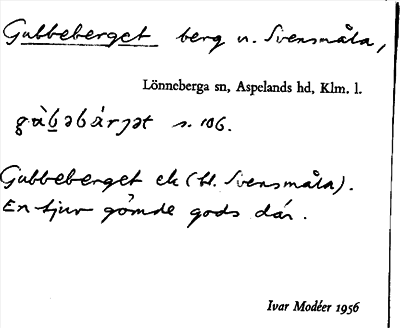 Gubbeberget berg n. Svensmåla,
Lönneberga sn, Aspelands hd, Klm. l.
gùb̲əbárjət s. 106.
Gubbeberget ek (bl. Svensmåla).
En tjuv gömde gods där.
Ivar Modéer 1956